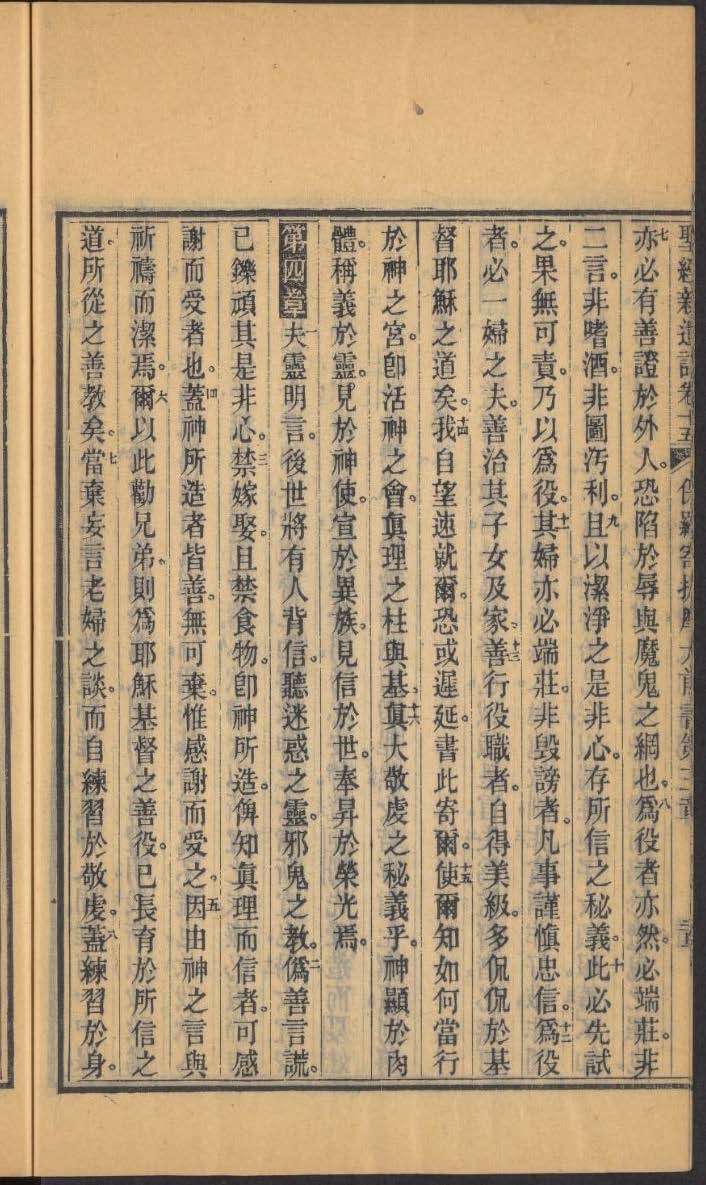 聖經新遺詔卷十五 保羅寄提摩太前書第三章
七亦必有善證於外人。恐陷於辱與魔鬼之網也。八爲役者亦然。必端莊。非
二言。非嗜酒。非圖汚利。九且以潔淨之是非心。存所信之秘義。十此必先試
之。果無可責。乃以爲役。十一其婦亦必端莊。非毀謗者。凡事謹愼忠信。十二爲役
者。必一婦之夫。善治其子女及家。十三善行役職者。自得美級。多侃侃於基
督耶穌之道矣。十四我自望速就爾。恐或遲延。書此寄爾。十五使爾知如何當行
於神之宮。卽活神之會。眞理之柱與基。十六眞大敬虔之秘義乎。神顯於肉
體。稱義於靈。見於神使。宣於異族。見信於世。奉昇於榮光焉。
第四章一夫靈明言。後世將有人背信。聽迷惑之靈。邪鬼之教。二僞善言謊。
已鑠頑其是非心。三禁嫁娶。且禁食物。卽神所造。俾知眞理而信者。可感
謝而受者也。四蓋神所造者皆善。無可棄。惟感謝而受之。五因由神之言與
祈禱而潔焉。六爾以此勸兄弟。則爲耶穌基督之善役。已長育於所信之
道。所從之善教矣。七當棄妄言老婦之談。而自練習於敬虔。八蓋練習於身。